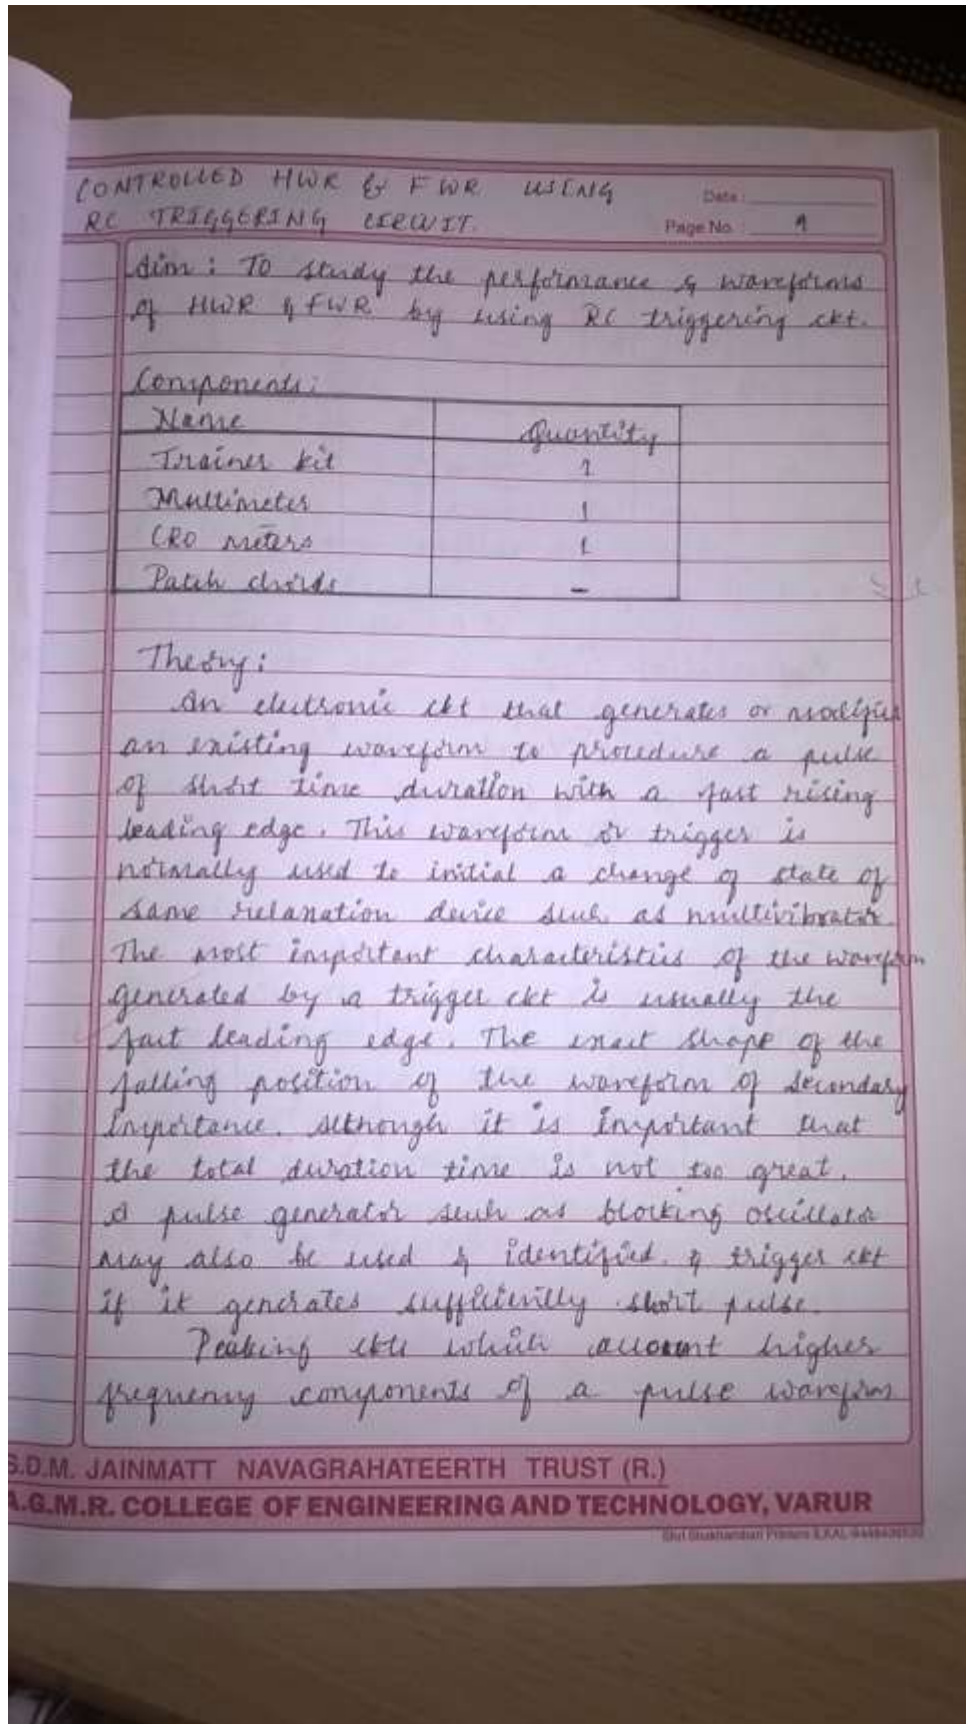 CONTROLLED HWR & FWR USING
RC TRIGGERING CIRCUIT.
Date :
Page No. : 1
Aim : To study the performance & waveforms
of HWR & FWR by using RC triggering ckt.
Components :
Name Quantity
Trainer kit 1
Multimeter 1
CRO meters 1
Patch chords -
Theory :
An electronic ckt that generates or modifies
an existing waveform to procedure a pulse
of short time duration with a fast rising
leading edge. This waveform or trigger is
normally used to initial a change of state of
same relaxation device such as multivibrator.
The most important characteristics of the waveform
generated by a trigger ckt is usually the
fast leading edge. The exact shape of the
falling position of the waveform of secondary
importance. Although it is important that
the total duration time is not too great.
A pulse generator such as blocking oscillator
may also be used & identified. & trigger ckt
if it generates sufficiently short pulse.
Peaking ckts which account higher
frequency components of a pulse waveform
S.D.M. JAINMATT NAVAGRAHATEERTH TRUST (R.)
A.G.M.R. COLLEGE OF ENGINEERING AND TECHNOLOGY, VARUR